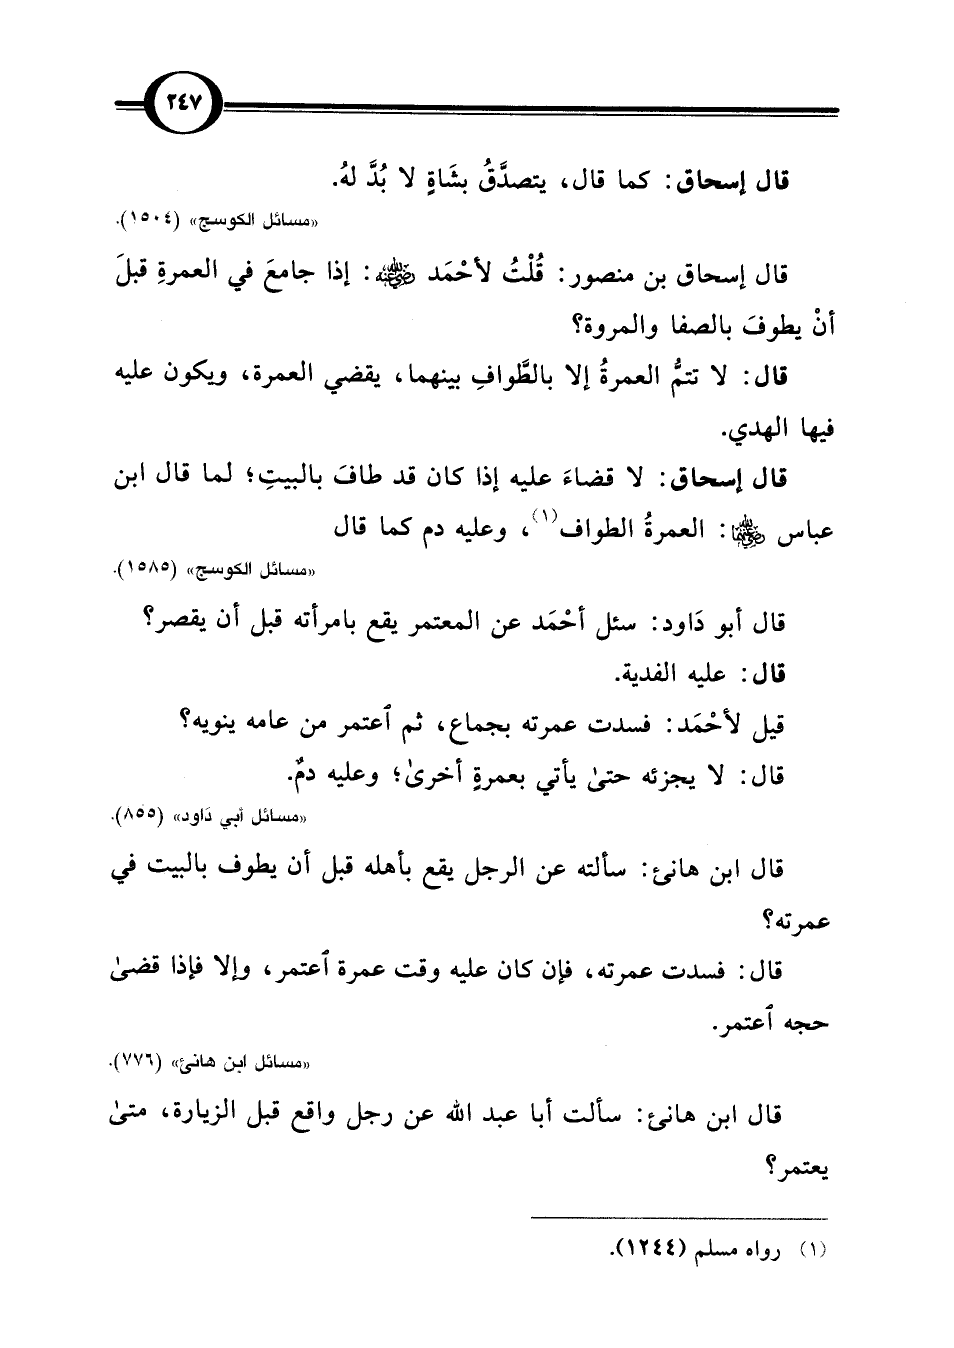 ٢٤٧
قال إسحاق: كما قال، يتصدَّقُ بشَاةٍ لا بُدَّ لهُ.
«مسائل الكوسج» (١٥٠٤).
قال إسحاق بن منصور: قُلْتُ لأحْمَد رضي الله عنه: إذا جامعَ في العمرةِ قبلَ
أنْ يطوفَ بالصفا والمروة؟
قال: لا تتمُّ العمرةُ إلا بالطَّوافِ بينهما، يقضي العمرة، ويكون عليه
فيها الهدي.
قال إسحاق: لا قضاءَ عليه إذا كان قد طافَ بالبيتِ؛ لما قال ابن
عباس رضي الله عنهما: العمرةُ الطواف(١)، وعليه دم كما قال
«مسائل الكوسج» (١٥٨٥).
قال أبو دَاود: سئل أحْمَد عن المعتمر يقع بامرأته قبل أن يقصر؟
قال: عليه الفدية.
قيل لأحْمَد: فسدت عمرته بجماع، ثم ٱعتمر من عامه ينويه؟
قال: لا يجزئه حتىٰ يأتي بعمرةٍ أخرىٰ؛ وعليه دمٌ.
«مسائل أبي دَاود» (٨٥٥).
قال ابن هانئ: سألته عن الرجل يقع بأهله قبل أن يطوف بالبيت في
عمرته؟
قال: فسدت عمرته، فإن كان عليه وقت عمرة ٱعتمر، وإلا فإذا قضىٰ
حجه ٱعتمر.
«مسائل ابن هانئ» (٧٧٦).
قال ابن هانئ: سألت أبا عبد الله عن رجل واقع قبل الزيارة، متىٰ
يعتمر؟
(١) رواه مسلم (١٢٤٤).